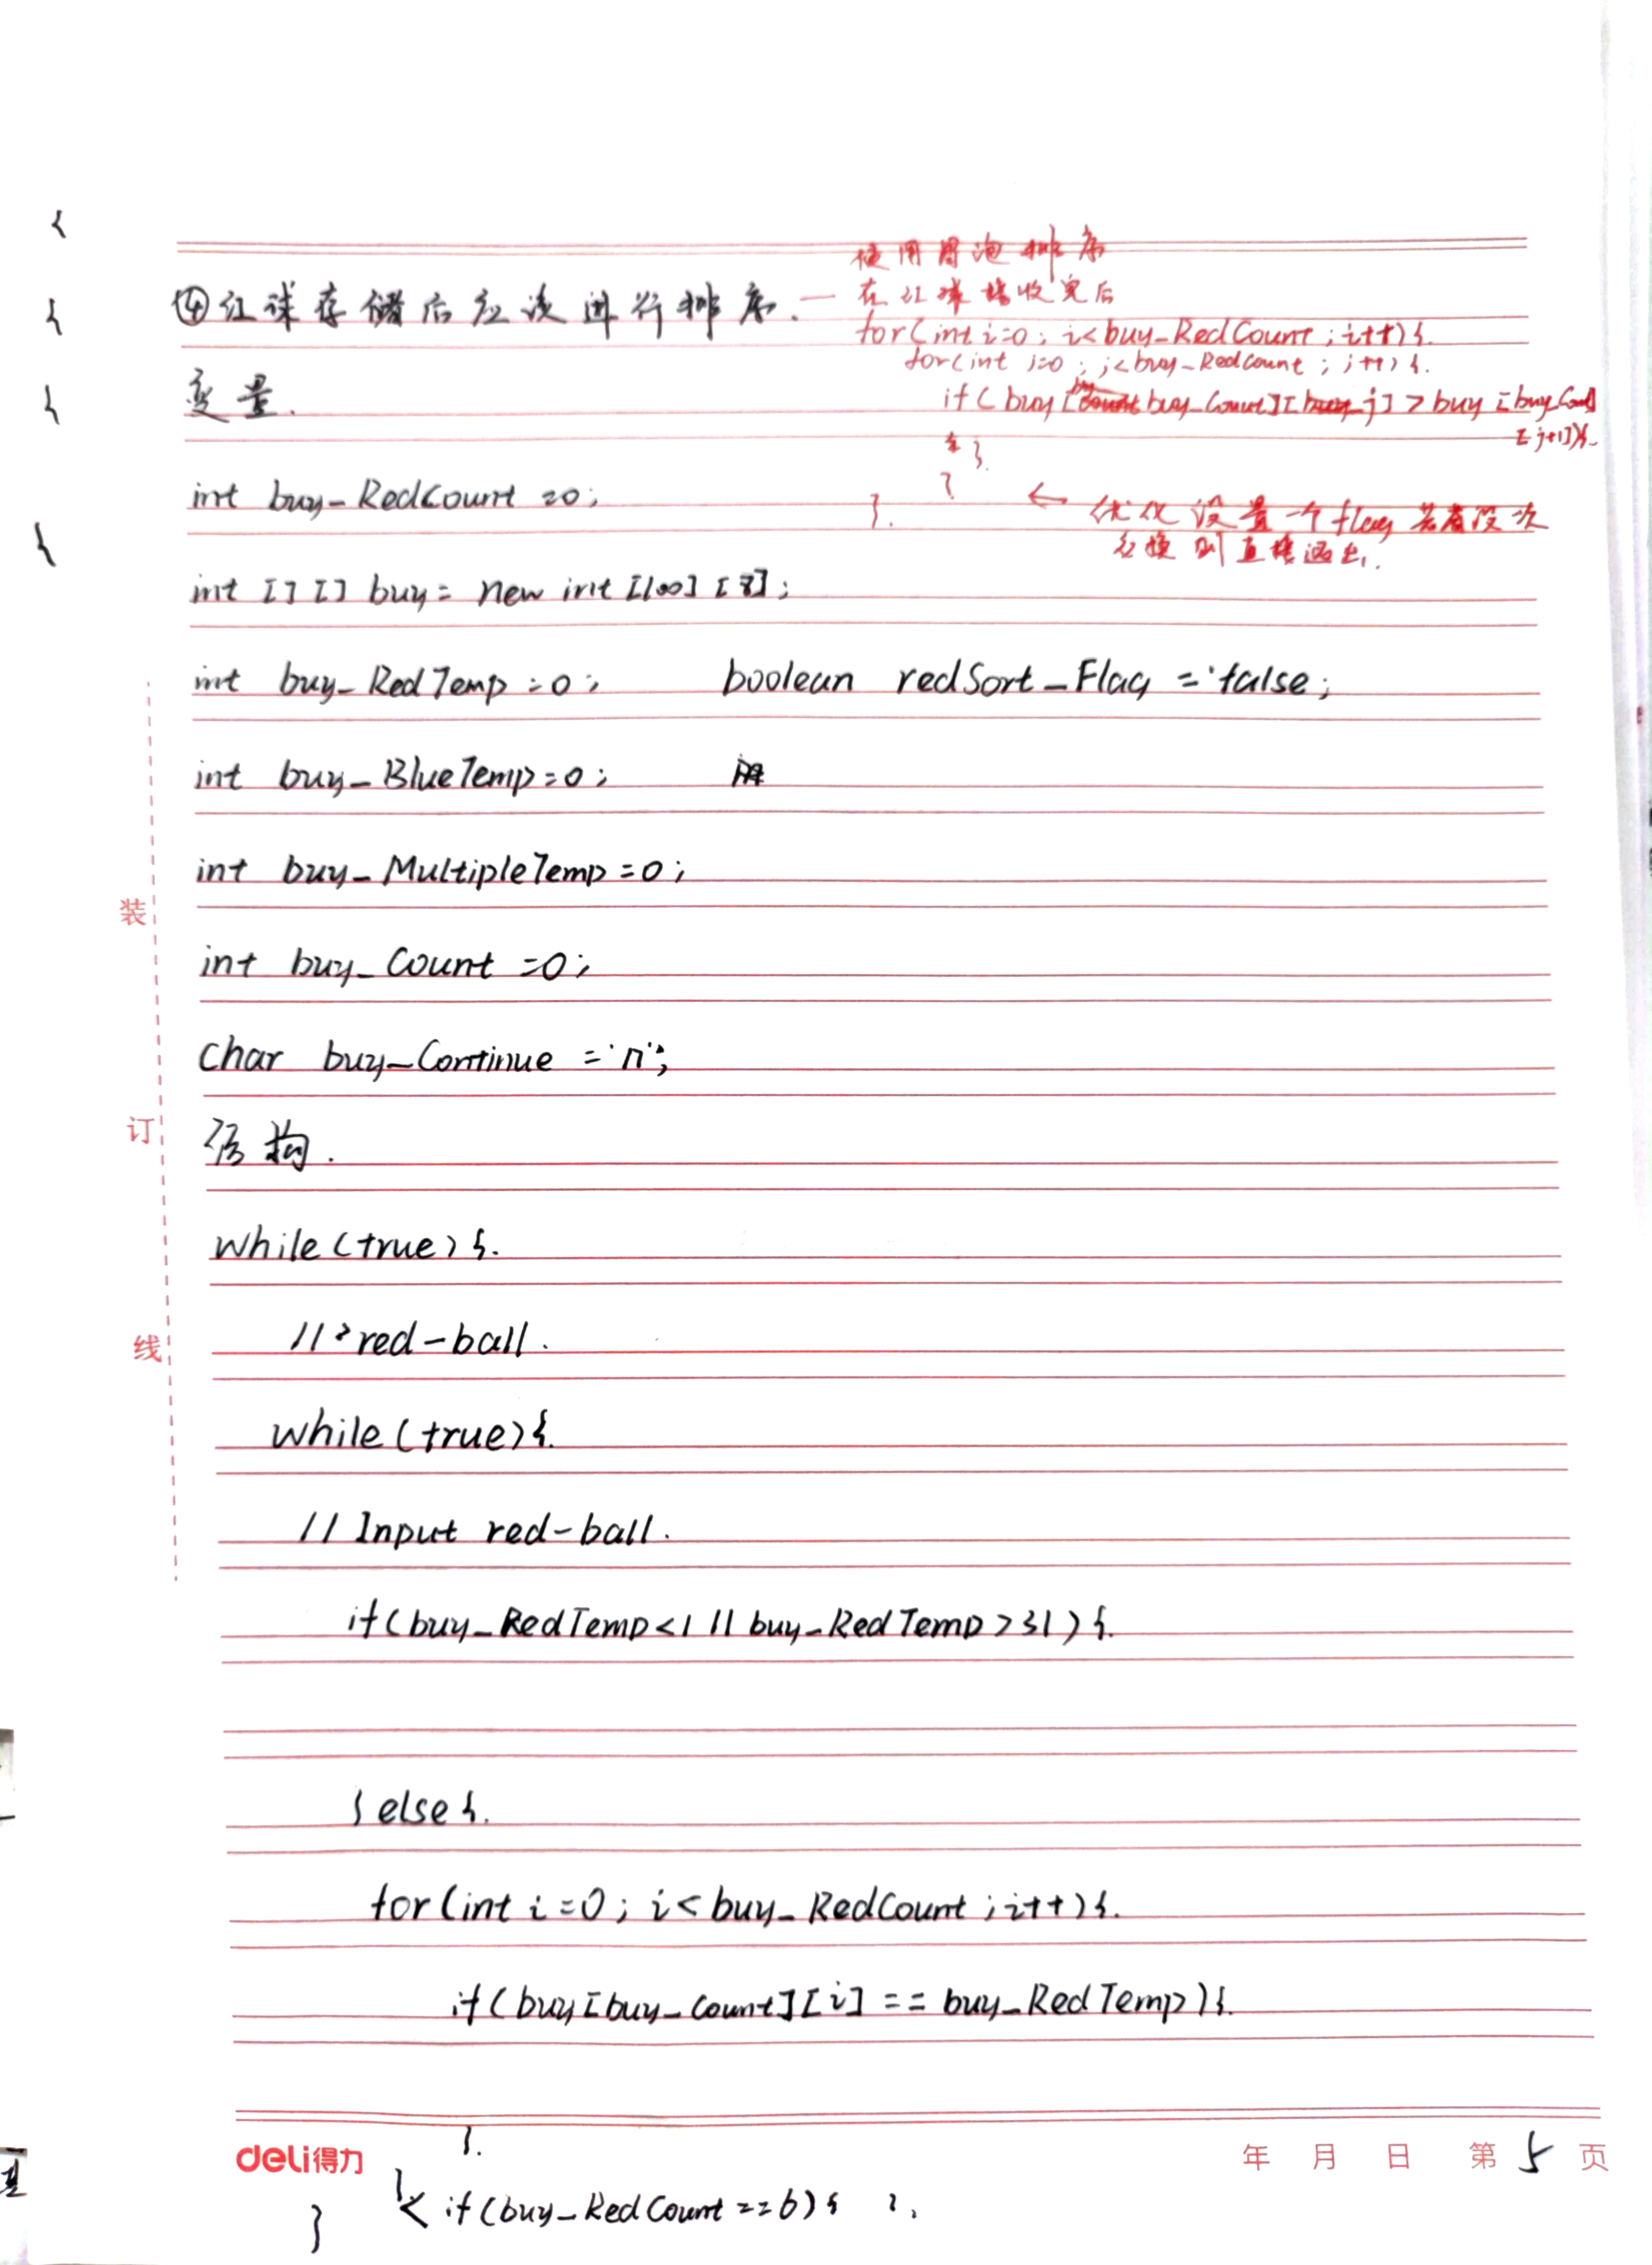 使用冒泡排序
④红球存储后应该进行排序. — 在红球接收完后
for(int i=0; i<buy_RedCount; i++){.
for(int j=0; j<buy_RedCount; j++){.
变量.
if( buy[buy_Count][j] > buy[buy_Count]
[j+1]){.
}.
}
int buy_RedCount =0;
}. ← 优化 设置一个flag 若有没次
交换则直接退出.
int [][] buy = new int [100][8];
int buy_RedTemp =0; boolean redSort_Flag = false;
int buy_BlueTemp=0;
int buy_MultipleTemp=0;
int buy_Count =0;
char buy_Continue ='n';
结构.
while(true){.
//>red-ball.
while(true){.
//Input red-ball.
if(buy_RedTemp<1 || buy_RedTemp>31){.
}else{.
for(int i=0; i<buy_RedCount; i++){.
if(buy[buy_Count][i] == buy_RedTemp){.
}.
}< if(buy_RedCount==6){ }.
}
装
订
线
deli得力
年 月 日 第 5 页